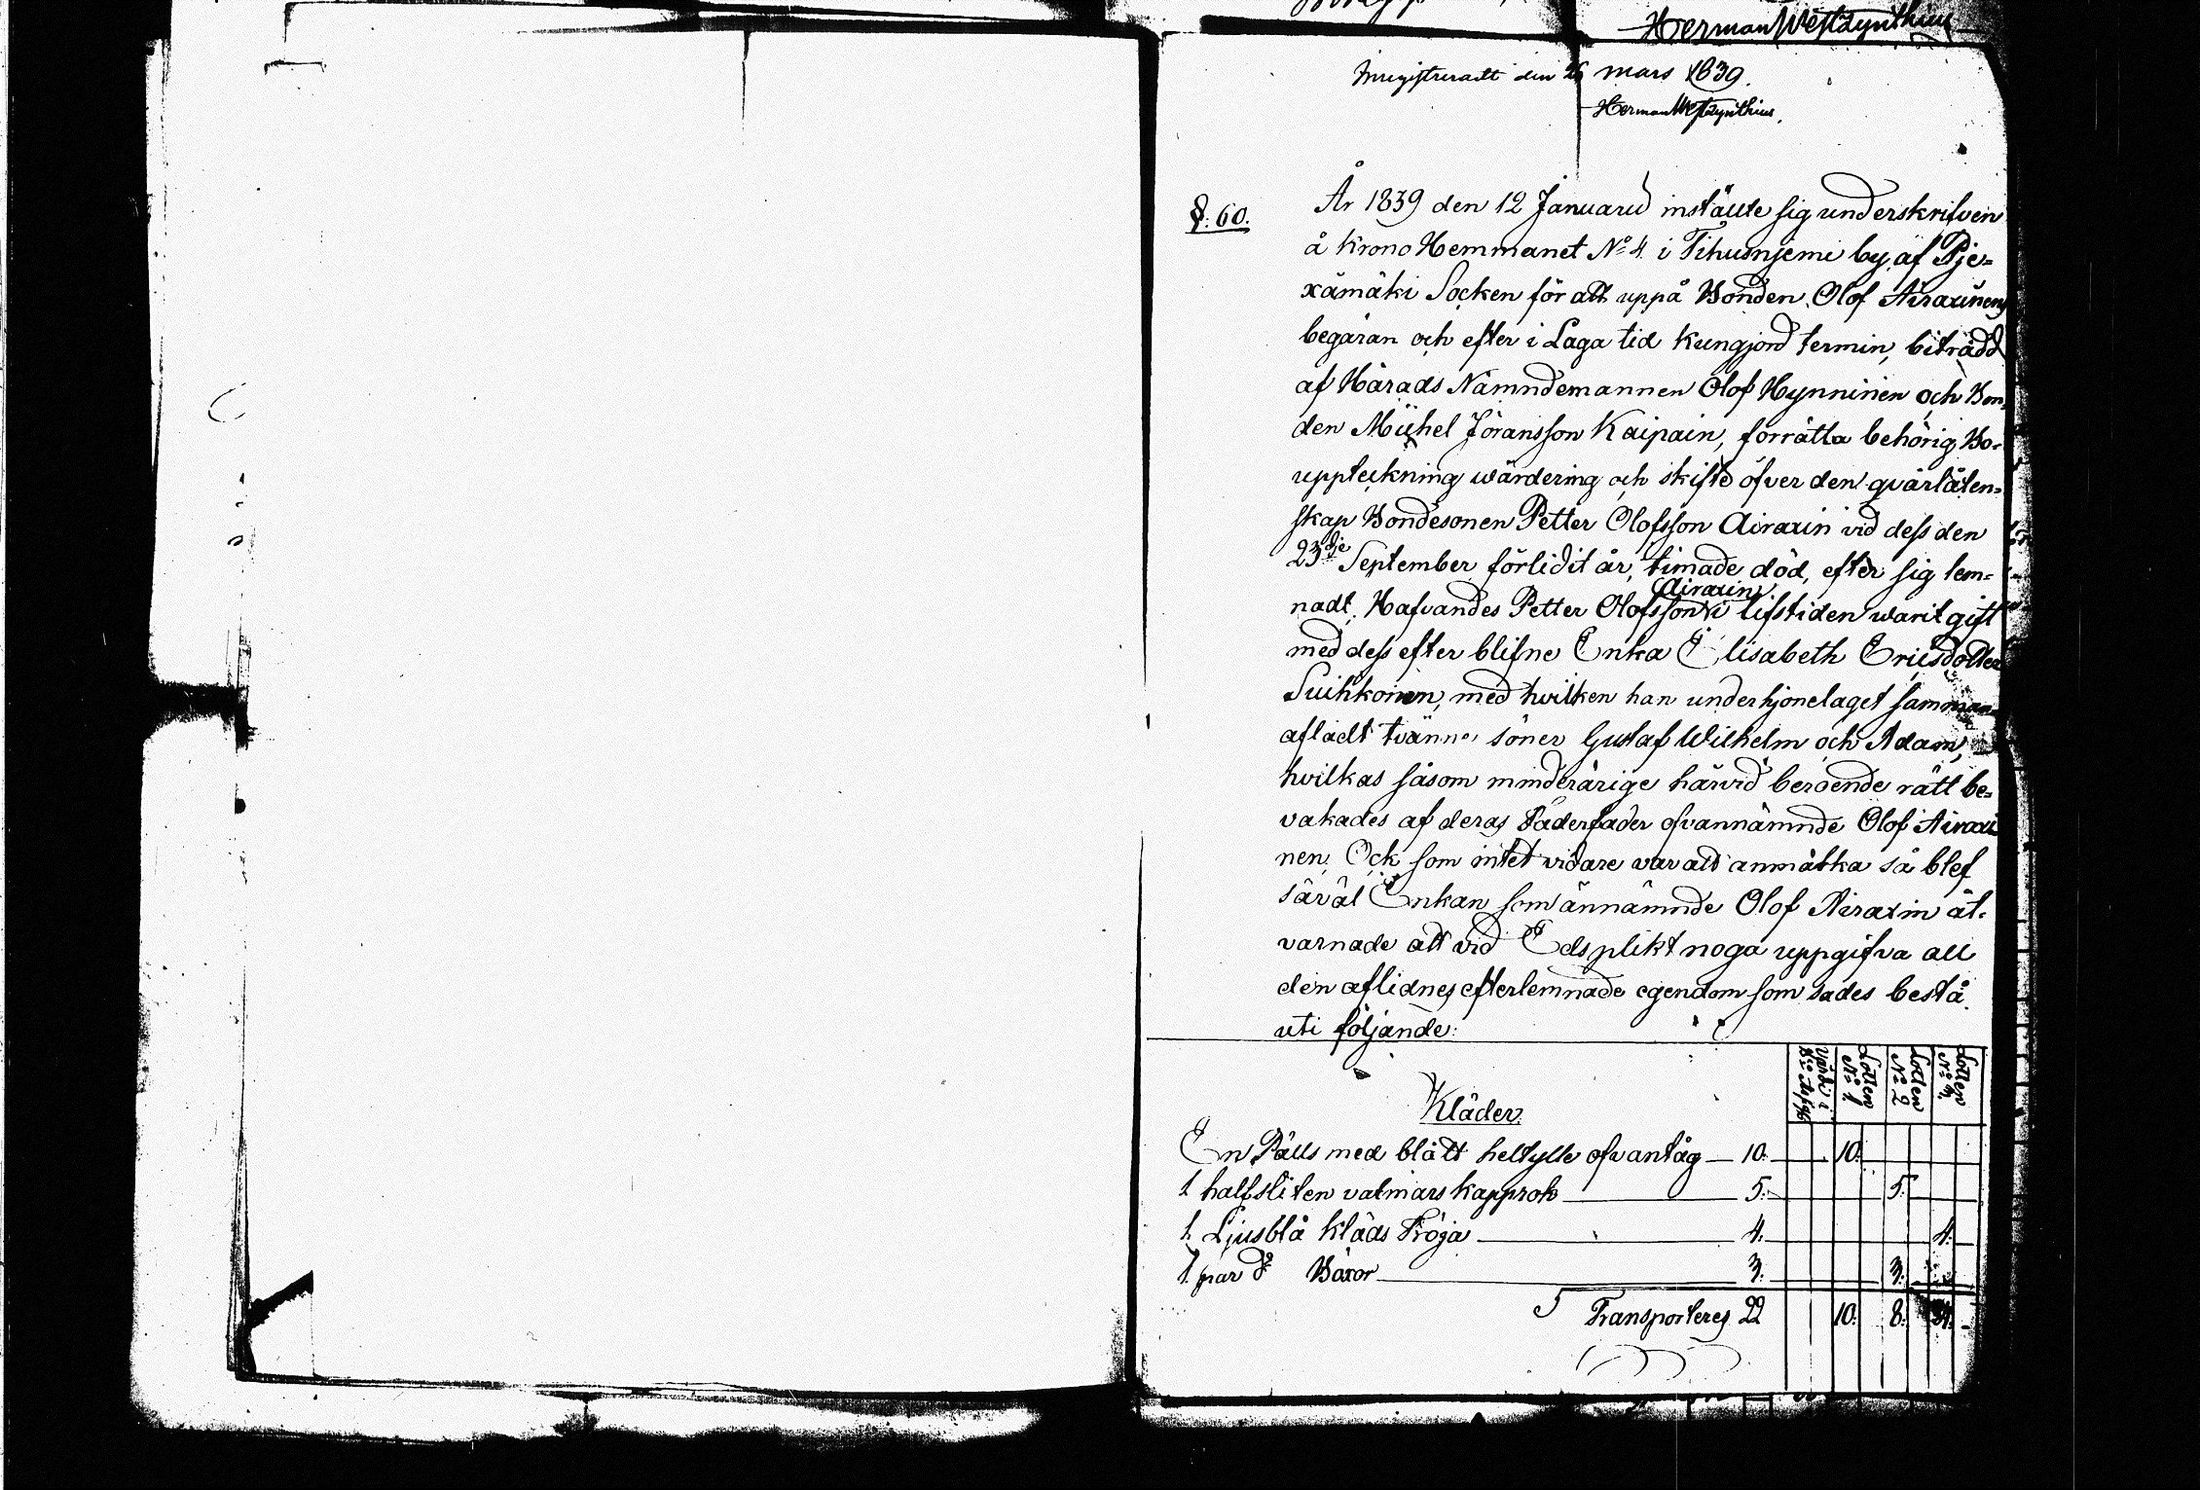 Herman Westzynthius
Inregistreradt den 26 mars 1839.
Herman Westzynthius.
§. 60.
År 1839 den 12 Januarii instälte sig underskrifven
å Krono Hemmanet No 4 i Tihusnjemi by af Pje-
xämäki Socken för att uppå Bonden Olof Airaxinens
begäran och efter i Laga tid kungjord termin, biträdd
af Härads Nämndemannen Olof Hynninen och Bon-
den Michel Jöransson Kaipain, förrätta behörig Bo-
uppteckning wärdering och skifte öfver den qvarlåten-
skap Bondesonen Petter Olofsson Airaxin vid dess den
23dje September förlidit år, timade död, efter sig lem-
nadt. Hafvandes Petter Olofsson Airaxin i lifstiden warit gift
med dess efter blifne Enka Elisabeth Ericsdotter
Suihkonen, med hvilken han under hjonelaget samman-
afladt tvänne söner Gustaf Wilhelm och Adam,
hvilkas såsom minderårige härvid beroende rätt be-
vakades af deras Faderfader ofvannämnde Olof Airaxi
nen. Ock som intet vidare var att anmärka så blef
såväl Enkan som ännämnde Olof Airaxin åt-
varnade att vid Edsplikt noga uppgifva all
den aflidnes efterlemnade egendom som sades bestå
uti följande:
Värde i Lotten No 1. Lotten No 2 Lotten No 3.
Kläder.
En Pälls med blått heltylle ofvantåg 10. 10.
1 halfsliten valmars kapprok 5. 5.
1 Ljusblå Kläds Tröja 4. 4.
1 par do Böxor 3. 3.
Transporteres 22 10. 8. 4.